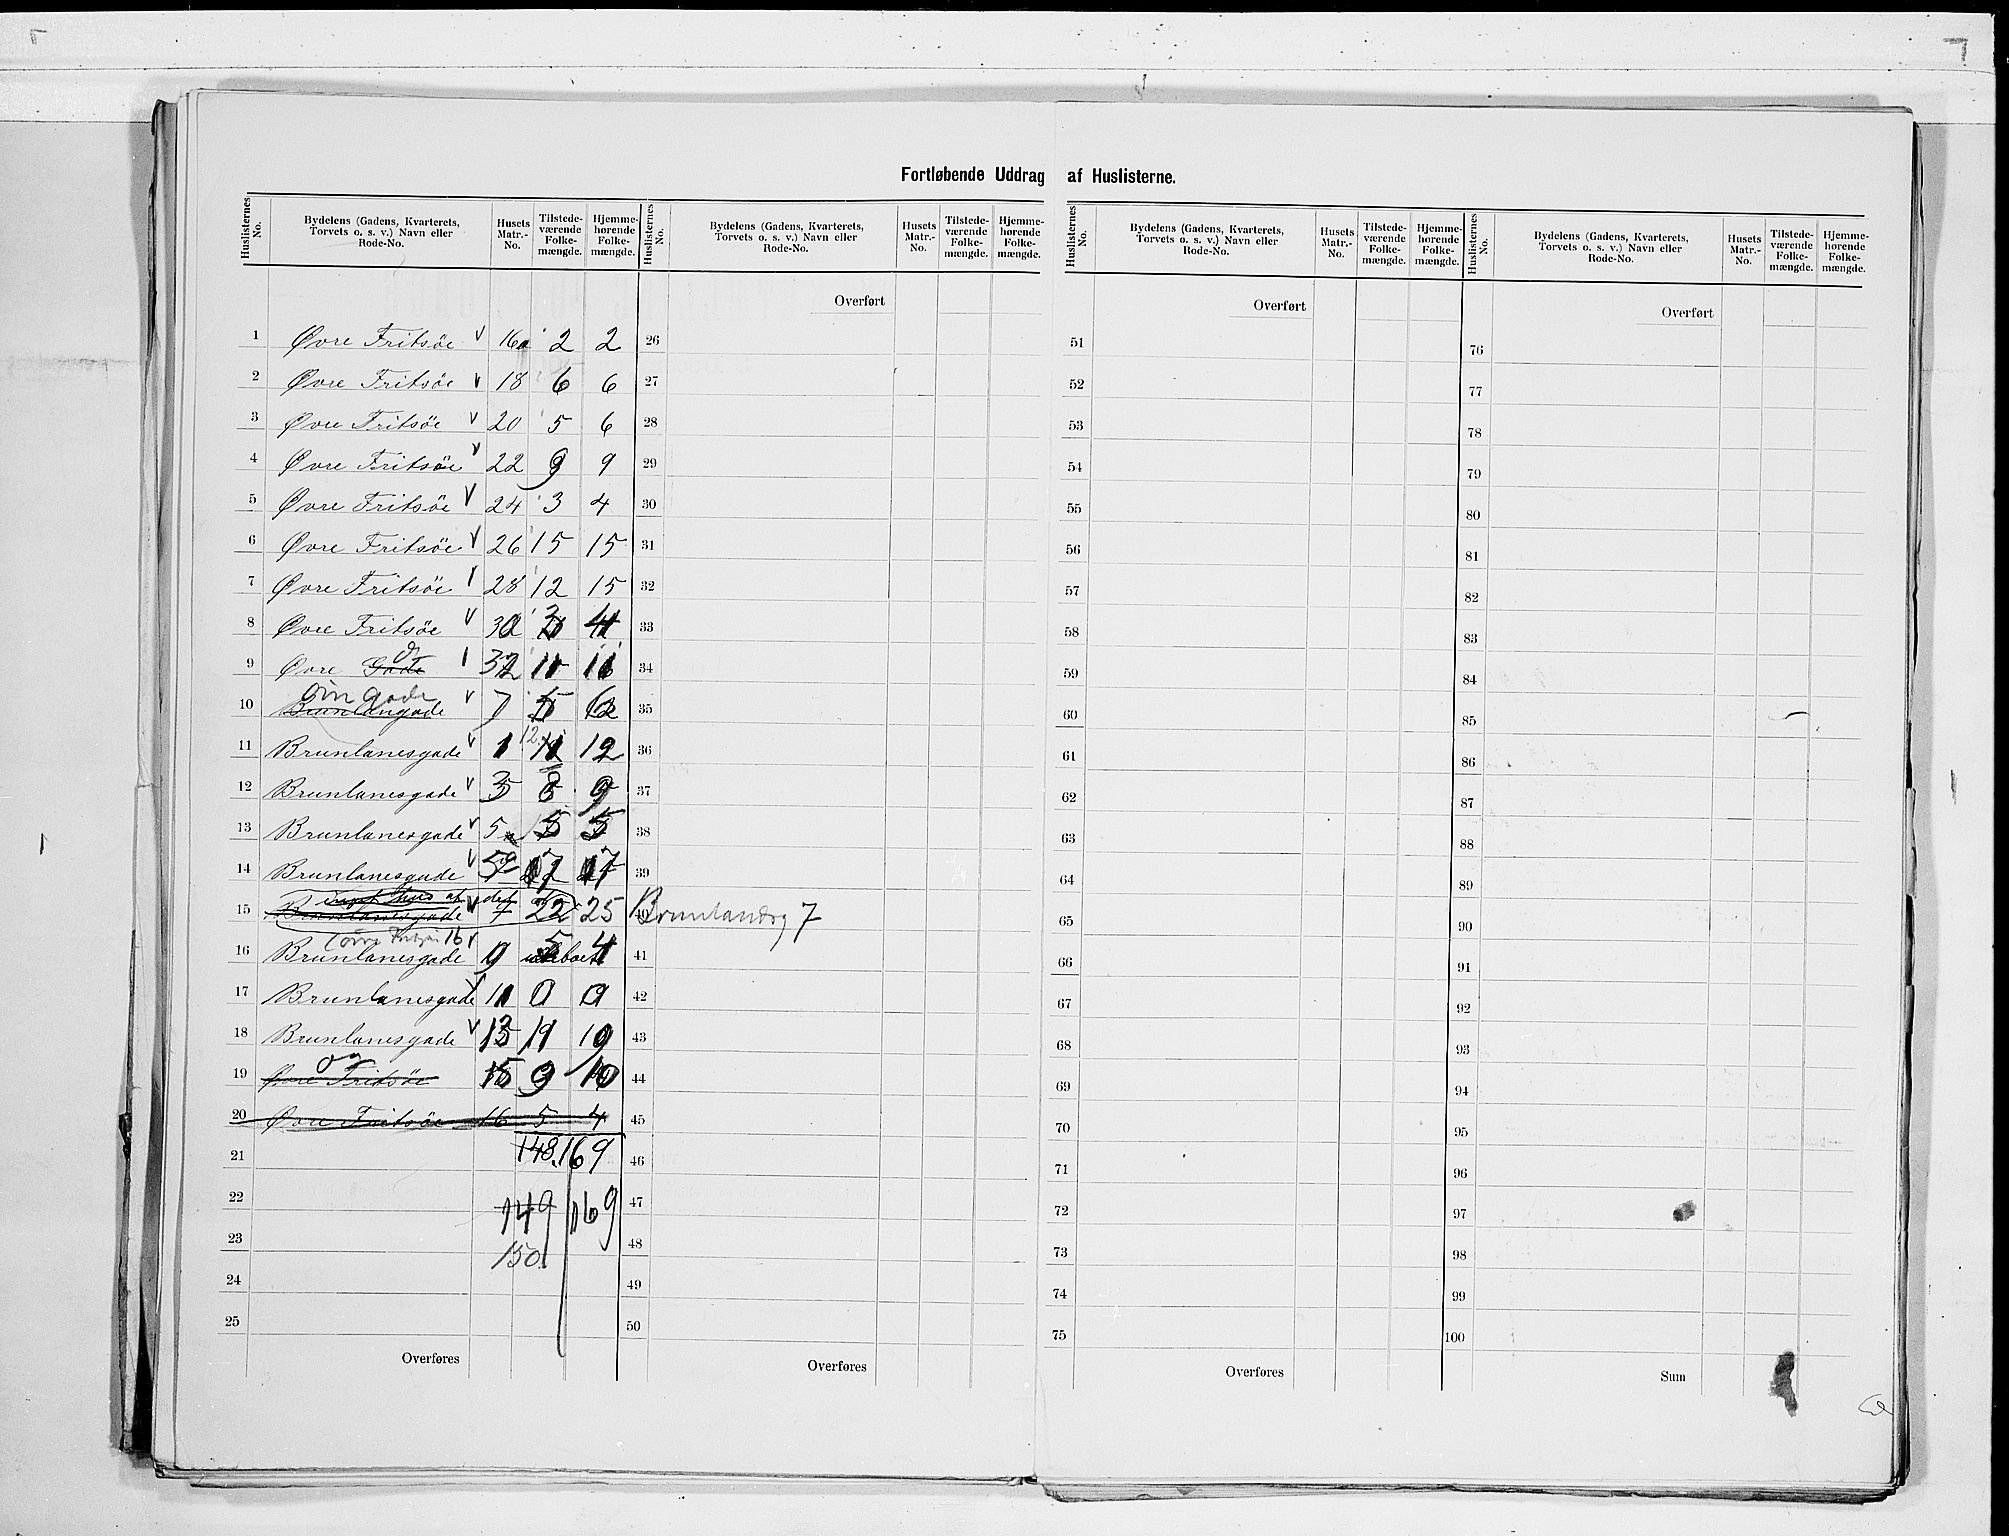 Fortløbende Uddrag af Huslisterne.
Huslisternes No. Bydelens (Gadens, Kvarterets, Torvets o. s. v.) Navn eller Rode-No. Husets Matr.-No. Tilstedeværende Folkemængde. Hjemmehørende Folkemængde.
Huslisternes No. Bydelens (Gadens, Kvarterets, Torvets o. s. v.) Navn eller Rode-No. Husets Matr.-No. Tilstedeværende Folkemængde. Hjemmehørende Folkemængde.
Huslisternes No. Bydelens (Gadens, Kvarterets, Torvets o. s. v.) Navn eller Rode-No. Husets Matr.-No. Tilstedeværende Folkemængde. Hjemmehørende Folkemængde.
Huslisternes No. Bydelens (Gadens, Kvarterets, Torvets o. s. v.) Navn eller Rode-No. Husets Matr.-No. Tilstedeværende Folkemængde. Hjemmehørende Folkemængde.
1 Øvre Fritsøe v 16a 2 2
2 Øvre Fritsøe v 18 6 6
3 Øvre Fritsøe v 20 5 6
4 Øvre Fritsøe v 22 9 9
5 Øvre Fritsøe v 24 3 4
6 Øvre Fritsøe v 26 15 15
7 Øvre Fritsøe 28 12 15
8 Øvre Fritsøe v 4
9 Øvre Gade 32 11
10 Brunlangade v 7
11 Brunlanesgade v 1 12 12
12 Brunlanesgade v 3 8 9
13 Brunlanesgade v 5 5 5
14 Brunlanesgade v 17
15 Brunlanesgade v 7 22 25
16 Brunlanesgade 16 v 9 5 4
17 Brunlanesgade 11 0 0
18 Brunlanesgade v 13 11
19 Øvre Fritsøe 15 9 10
20 Øvre Fritsøe 16 5 4
21 148 169
22 149 169
23 150
24
25
Overføres
Overført
26
27
28
29
30
31
32
33
34
35
36
37
38
39
40 7
41
42
43
44
45
46
47
48
49
50
Overføres
Overført
51
52
53
54
55
56
57
58
59
60
61
62
63
64
65
66
67
68
69
70
71
72
73
74
75
Overføres
Overført
76
77
78
79
80
81
82
83
84
85
86
87
88
89
90
91
92
93
94
95
96
97
98
99
100
Sum